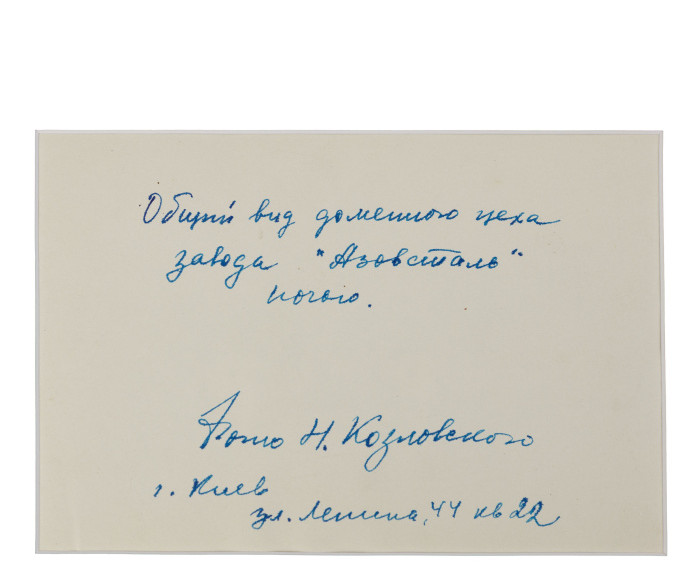 Общий вид доменного цеха
завода "Азовсталь"
ночью.
Фото Н. Козловского
г. Киев
ул. Ленина, 44 кв 22